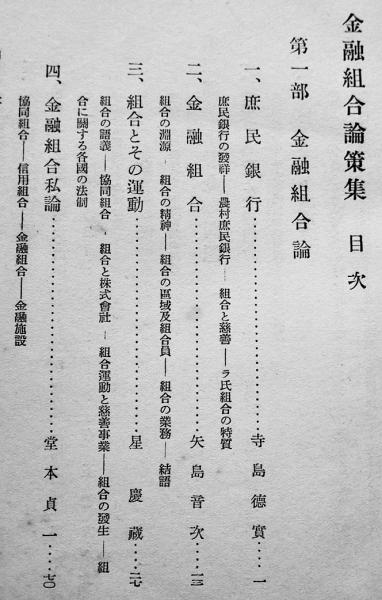 金融組合論策集 目次
第一部 金融組合論
一、庶民銀行……………………寺島德實……一
庶民銀行の發祥――農村庶民銀行――組合と慈善――ラ氏組合の特質
二、金融組合……………………矢島音次……一三
組合の淵源――組合の精神――組合の區域及組合員――組合の業務――結語
三、組合とその運動……………………星慶藏……二七
組合の語義――協同組合――組合と株式會社――組合運動と慈善事業――組合の發生――組
合に關する各國の法制
四、金融組合私論……………………堂本貞一……七〇
協同組合――信用組合――金融組合――金融施設